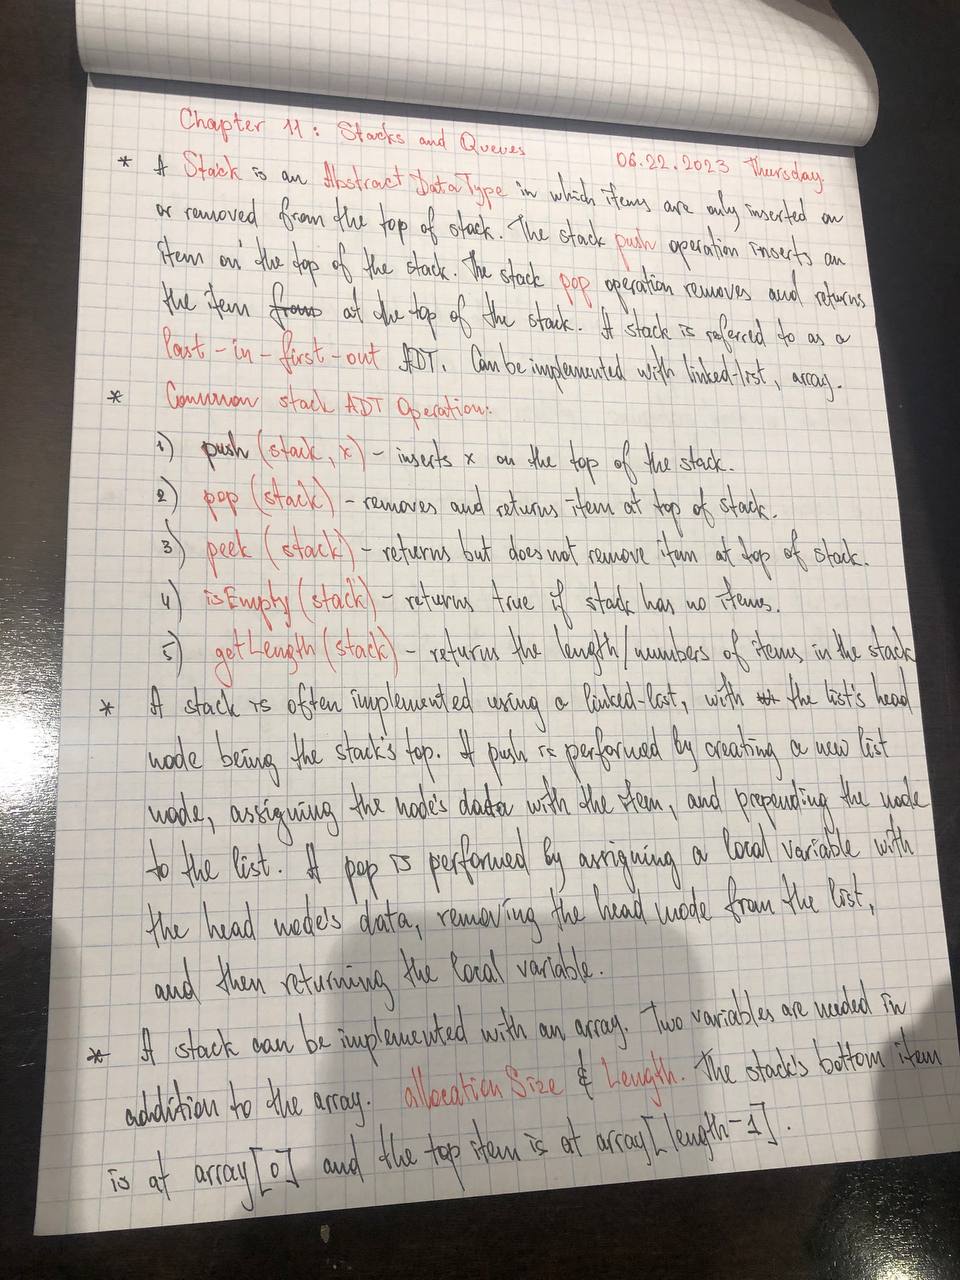 Chapter 11: Stacks and Queues
06.22.2023 Thursday.
* A Stack is an Abstract Data Type in which items are only inserted on
or removed from the top of stack. The stack push operation inserts an
item on the top of the stack. The stack pop operation removes and returns
the item from at the top of the stack. A stack is referred to as a
last-in-first-out ADT. Can be implemented with linked-list, array.
* Common stack ADT Operation:
1) push (stack, x) - inserts x on the top of the stack.
2) pop (stack) - removes and returns item at top of stack.
3) peek (stack) - returns but does not remove item at top of stack.
4) isEmpty (stack) - returns true if stack has no items.
5) getLength (stack) - returns the length/numbers of items in the stack
* A stack is often implemented using a linked-list, with the list's head
node being the stack's top. A push is performed by creating a new list
node, assigning the node's data with the item, and prepending the node
to the list. A pop is performed by assigning a local variable with
the head node's data, removing the head node from the list,
and then returning the local variable.
* A stack can be implemented with an array. Two variables are needed in
addition to the array. allocation Size & Length. The stack's bottom item
is at array[0] and the top item is at array[length-1].